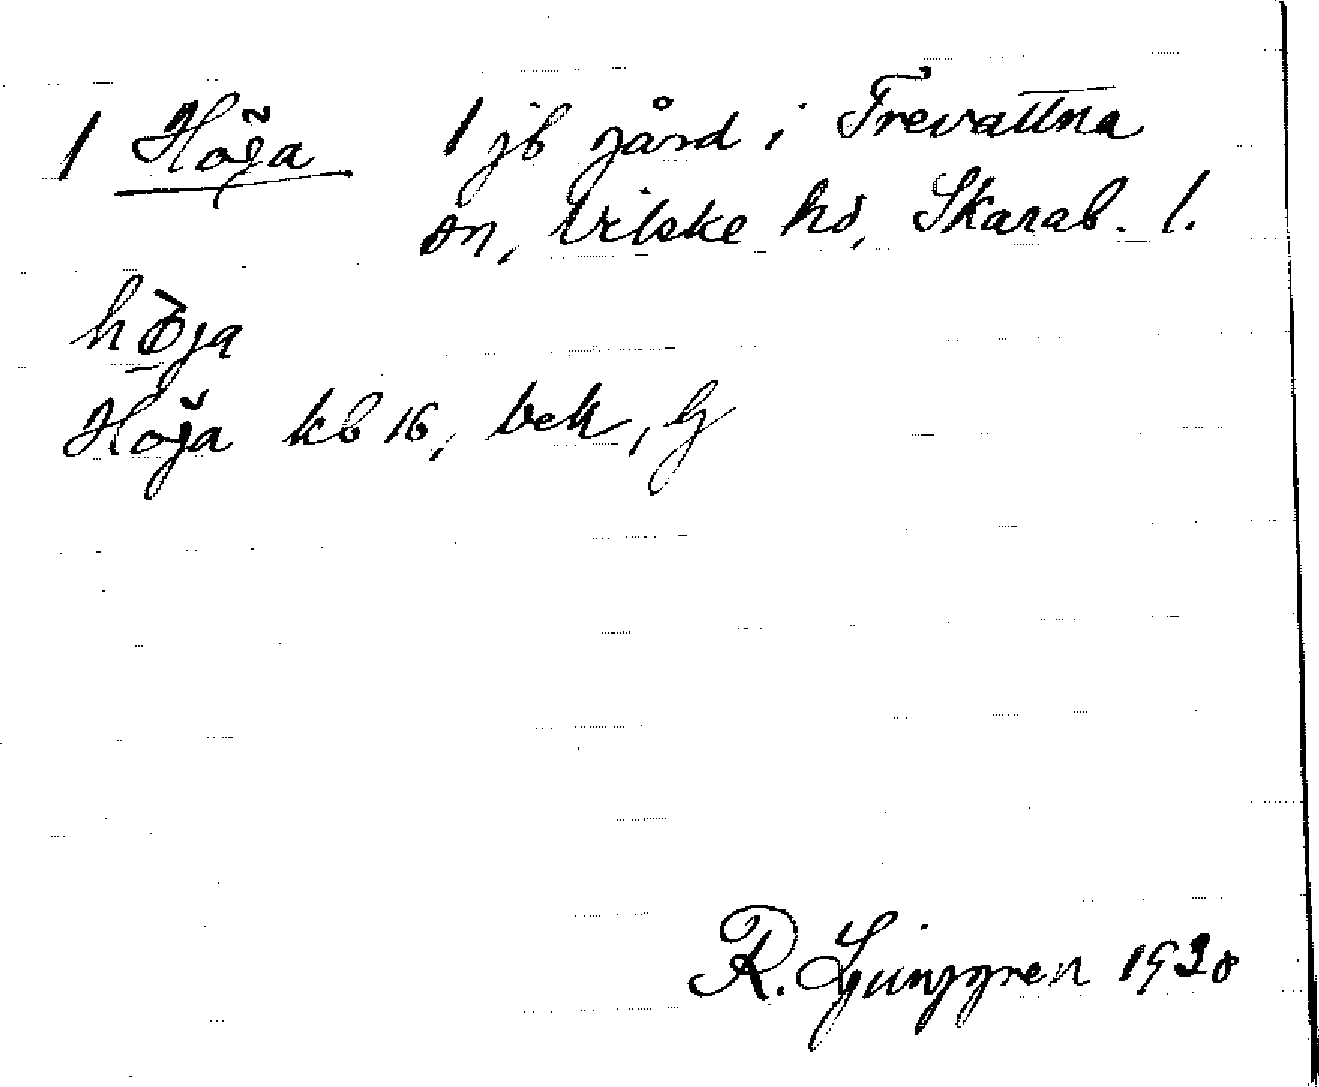 1 Höja 1 jb gård i Trevattna
sn, Vilske hd, Skarab. l.
höja
Höja kb 16, bek, G
R. Ljunggren 1920